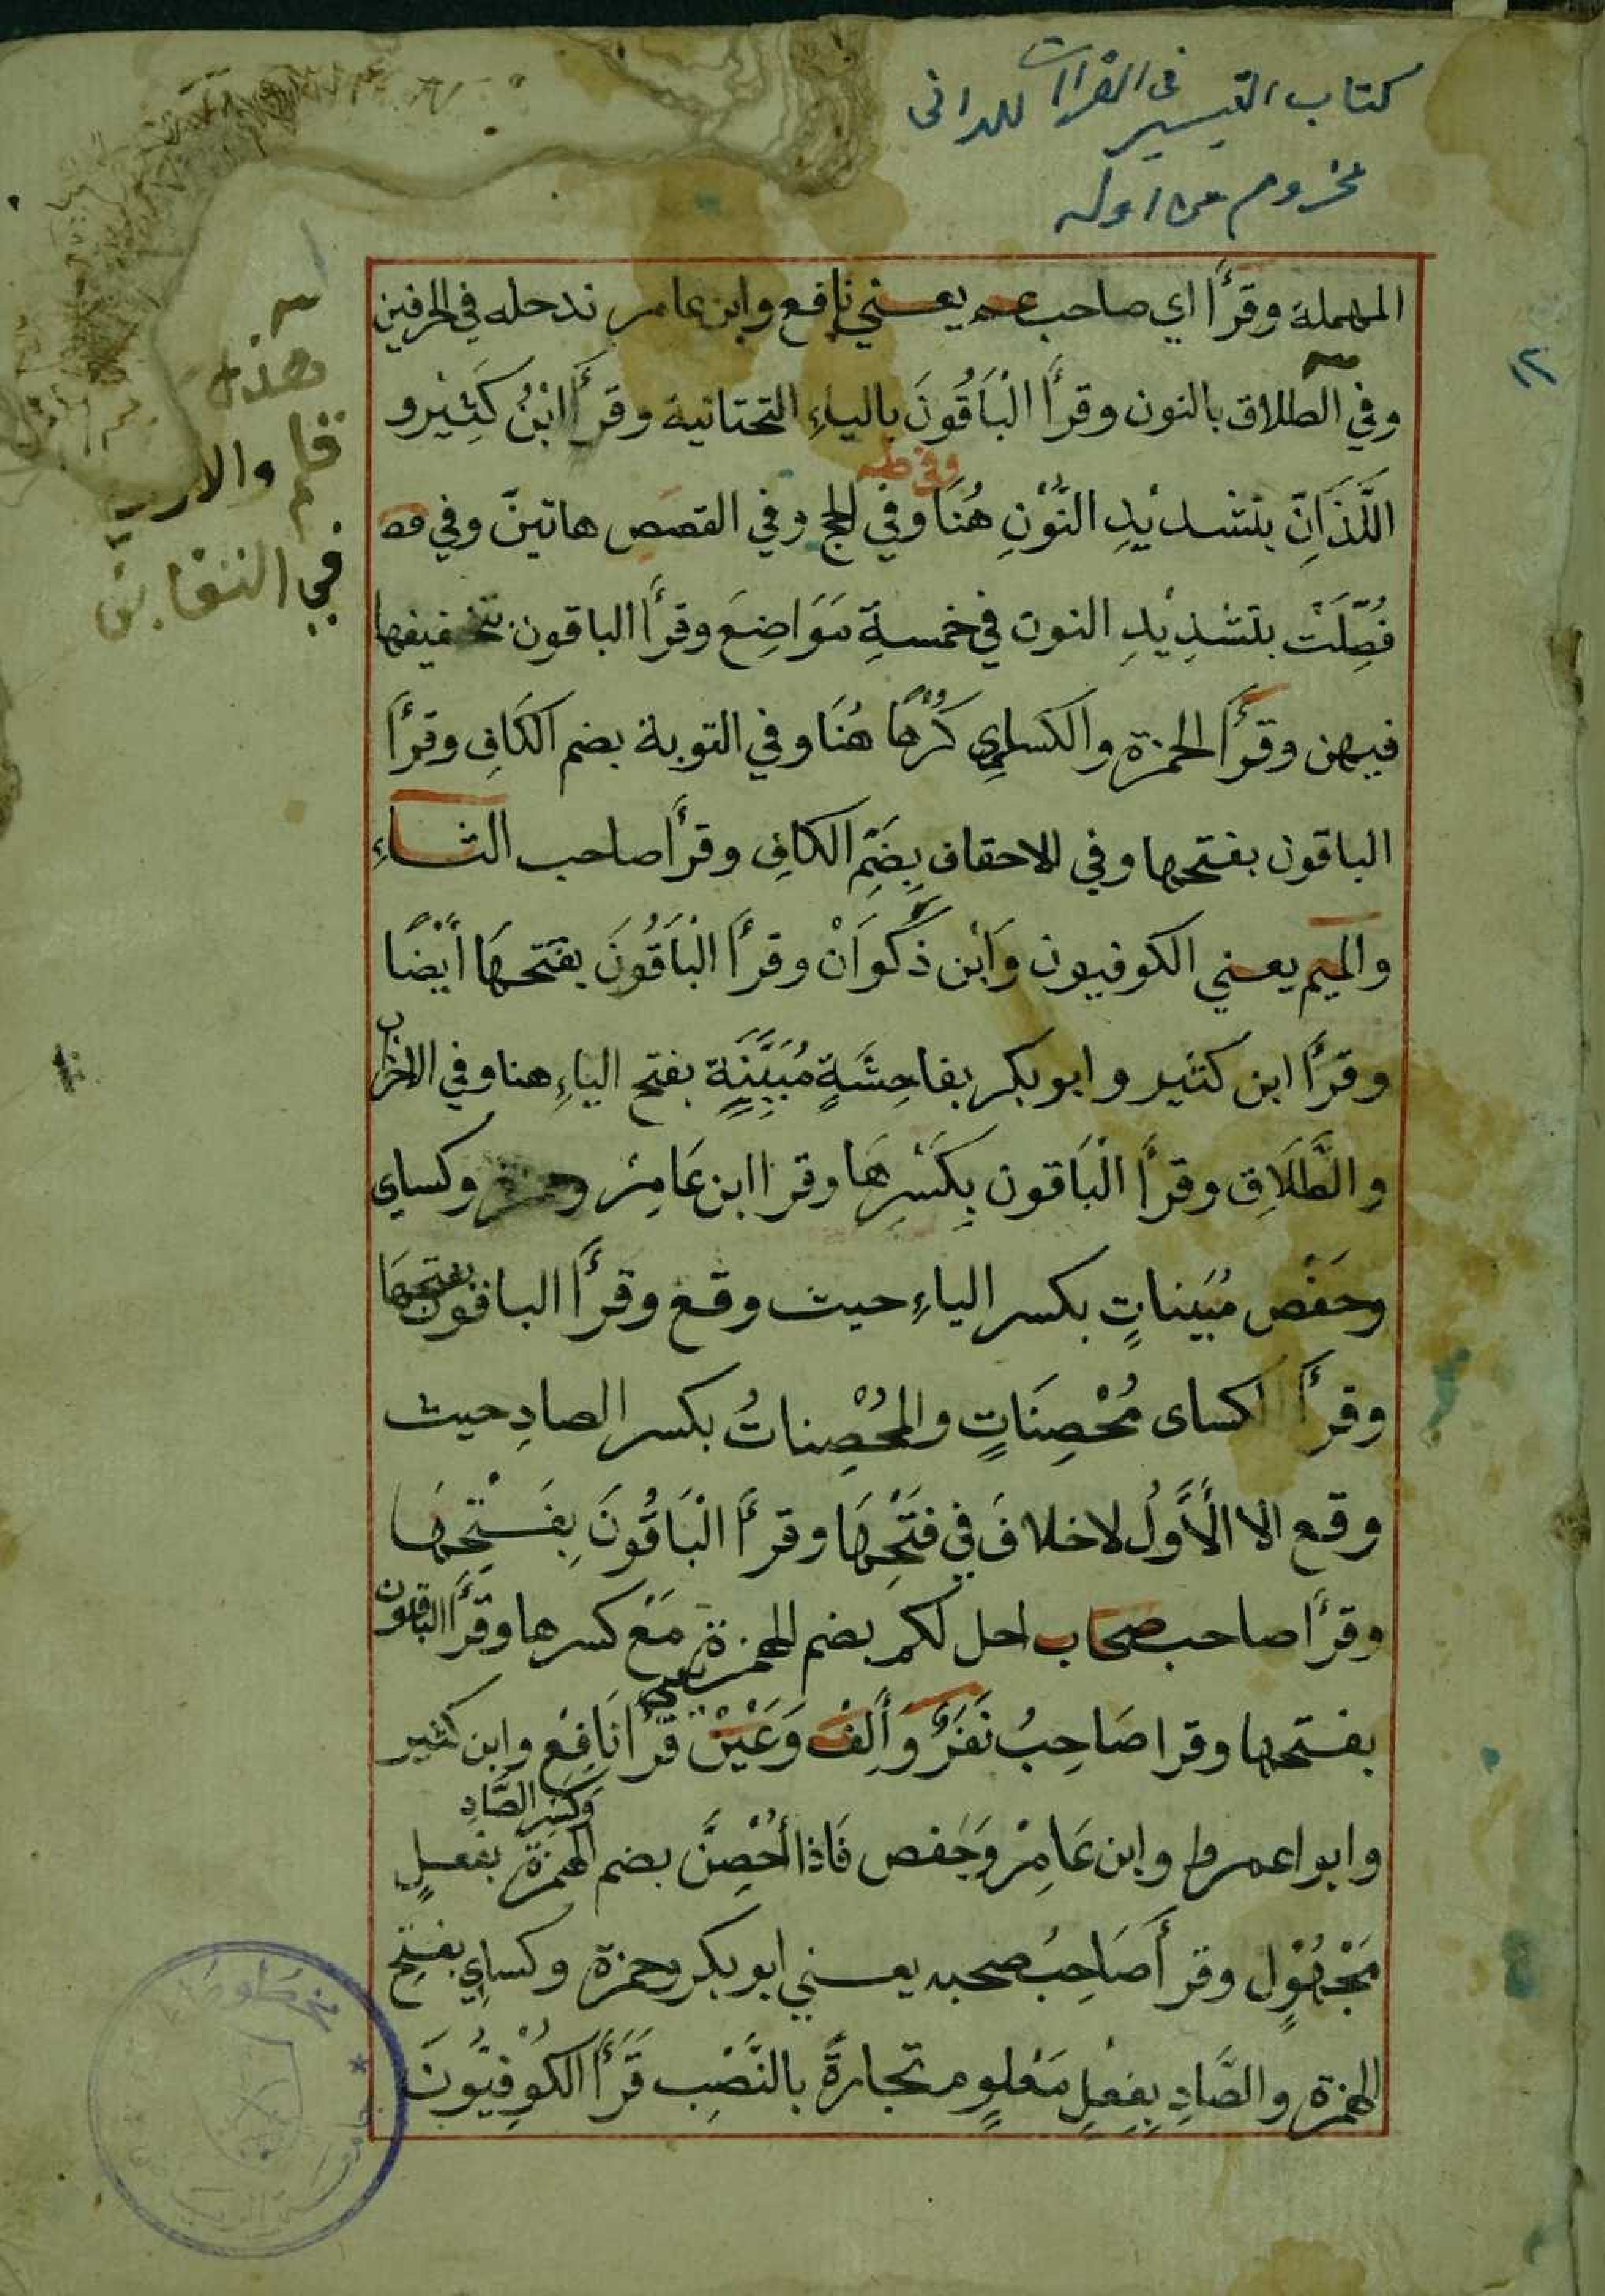 كتاب التيسير في القراات للداني
مخروم من اوله
١٢
المهملة وقرأ اي صاحب عم يعني نافع وابن عامر ندحله في الحرفين
وفي الطلاق بالنون وقرأ الْبَاقُونَ بالياءِ التحتانية وقرأَ ابْنُ كَثِيْرو
وفي طه
اللَّذَانِّ بتشديْدِ النُّوْنِ هُنَا وفي الحج وفي القصص هاتينّ وفي
فُصِّلَتْ بتشدِيْدِ النون في خمسةِ مَوَاضِعَ وقرأ الباقون بتخفيفها
فيهن وقرأ الحمزة والكساىِٔ كُرْهًا هُنَا وفي التوبة بضم الكَافِ وقرأ
الباقون بفتحها وفي الاحقاف بِضَمِّ الكافِ وقرأ صاحب الثاءِ
والميم يعني الكوفيون وَابْن ذَكْوَانْ وقرأ الْبَاقُونَ بفتحهَا أيْضًا
وقرأ ابن كثير وابو بكر بفاحِشَةٍ مُبَيَّنَةٍ بفتح الياءِ هنا وفي الاحزاب
والطَّلَاقِ وقرأ الْبَاقون بِكَسْرِهَا وقرا ابن عَامِرْ وحمزة وكساي
وحَفْص مُبَيناتٍ بكسر الياءِ حيث وقع وقرأ الباقون بفتحِهَا
وقرأ الكساى مُحْصِنَاتٍ والمُحْصِناتُ بكسر الصادِ حيث
وقع الا الْأَوَّلُ لاخلافَ في فَتْحِهَا وقرأ الْبَاقُوْنَ بِفَتْحِهَا
وقرأ صاحب صحاب احل لكم بضم الهمزة مَعْ كسرها وقَرَأَ الباقون
بفتحها وقرا صَاحِبُ نَفَرٌ وَأَلِفْ وَعَيْنْ يعني قرأ نَافِع وابن كثير
وَكَسْرِ الصَّادِ
وابو اعمرو وابن عَامِرْ وَحَفص فَاذا أُحْصِنَّ بضم الهمزة بفعلٍ
مَجْهُوْلٍ وقرأَ صَاحِبُ صحبه يعني ابو بكر وحمزة وكساي بفتحِ
الهمزة والصَّادِ بِفِعْلِ مَعْلومٍ تجارةً بالنَّصْبِ قَرَأَ الكُوْفِيُّونَ
هذه
قلم
في التغابن